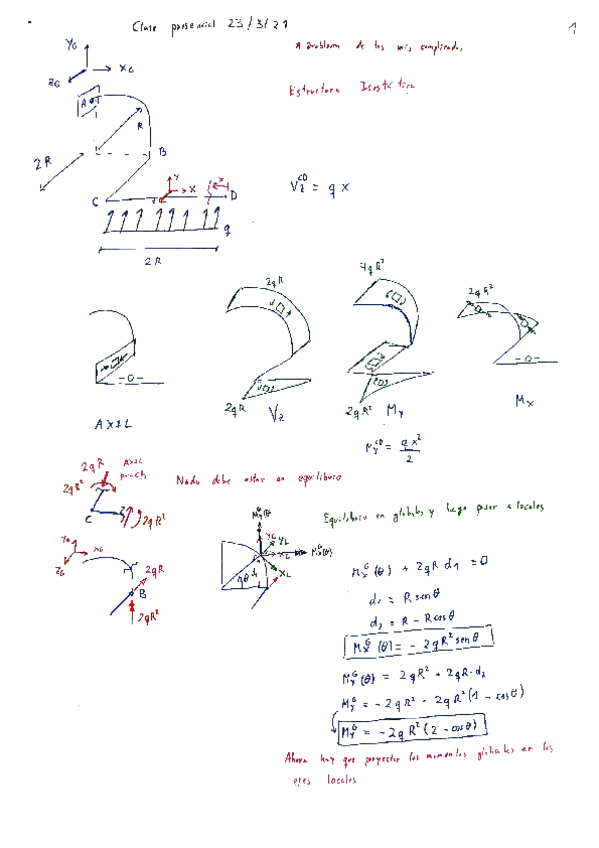 Clase presencial 23/3/21
1
A problema de los más complicados
Estructura Isostática
Y_G
X_G
Z_G
A
R
B
2R
Y
X
x
C
D
q
2R
V_z^CD = q x
-0-
AXIL
2qR
2qR
V_z
4qR²
2qR²
M_y
M_y^CD = q x² / 2
2qR²
-0-
M_x
2qR
Axil
2qR²
C
2qR²
Nudo debe estar en equilibrio
Y_G
X_G
Z_G
2qR
B
2qR²
M_y^G(θ)
Y_G
Y_L
X_G
M_x^G(θ)
X_L
θ
d_1
Equilibrio en globales y luego pasar a locales
M_x^G(θ) + 2qR d_1 = 0
d_1 = R senθ
d_2 = R - R cosθ
M_x^G(θ) = - 2qR² senθ
M_y^G(θ) = 2qR² + 2qR·d_2
M_y^G = - 2qR² - 2qR²(1 - cosθ)
M_y^G = - 2qR²(2 - cosθ)
Ahora hay que proyectar los momentos globales en los
ejes locales